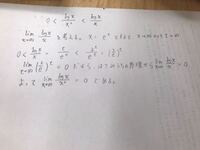 0 < log x / x² < log x / x
lim x→∞ log x / x を考える。 x = e^t とすると x→∞ のとき t→∞
0 < log x / x = t / e^t <
lim t→∞ = 0 だから、はさみうちの原理から lim x→∞ log x / x = 0
よって lim x→∞ log x / x² = 0 である。